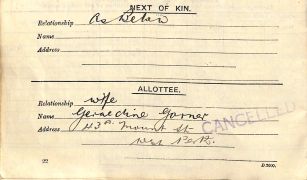 NEXT OF KIN.
Relationship As Below
Name
Address
ALLOTTEE.
Relationship wife
Name Geraldine Garner
Address 43A Mount St
West Perth.
CANCELLED
22
D.2600.